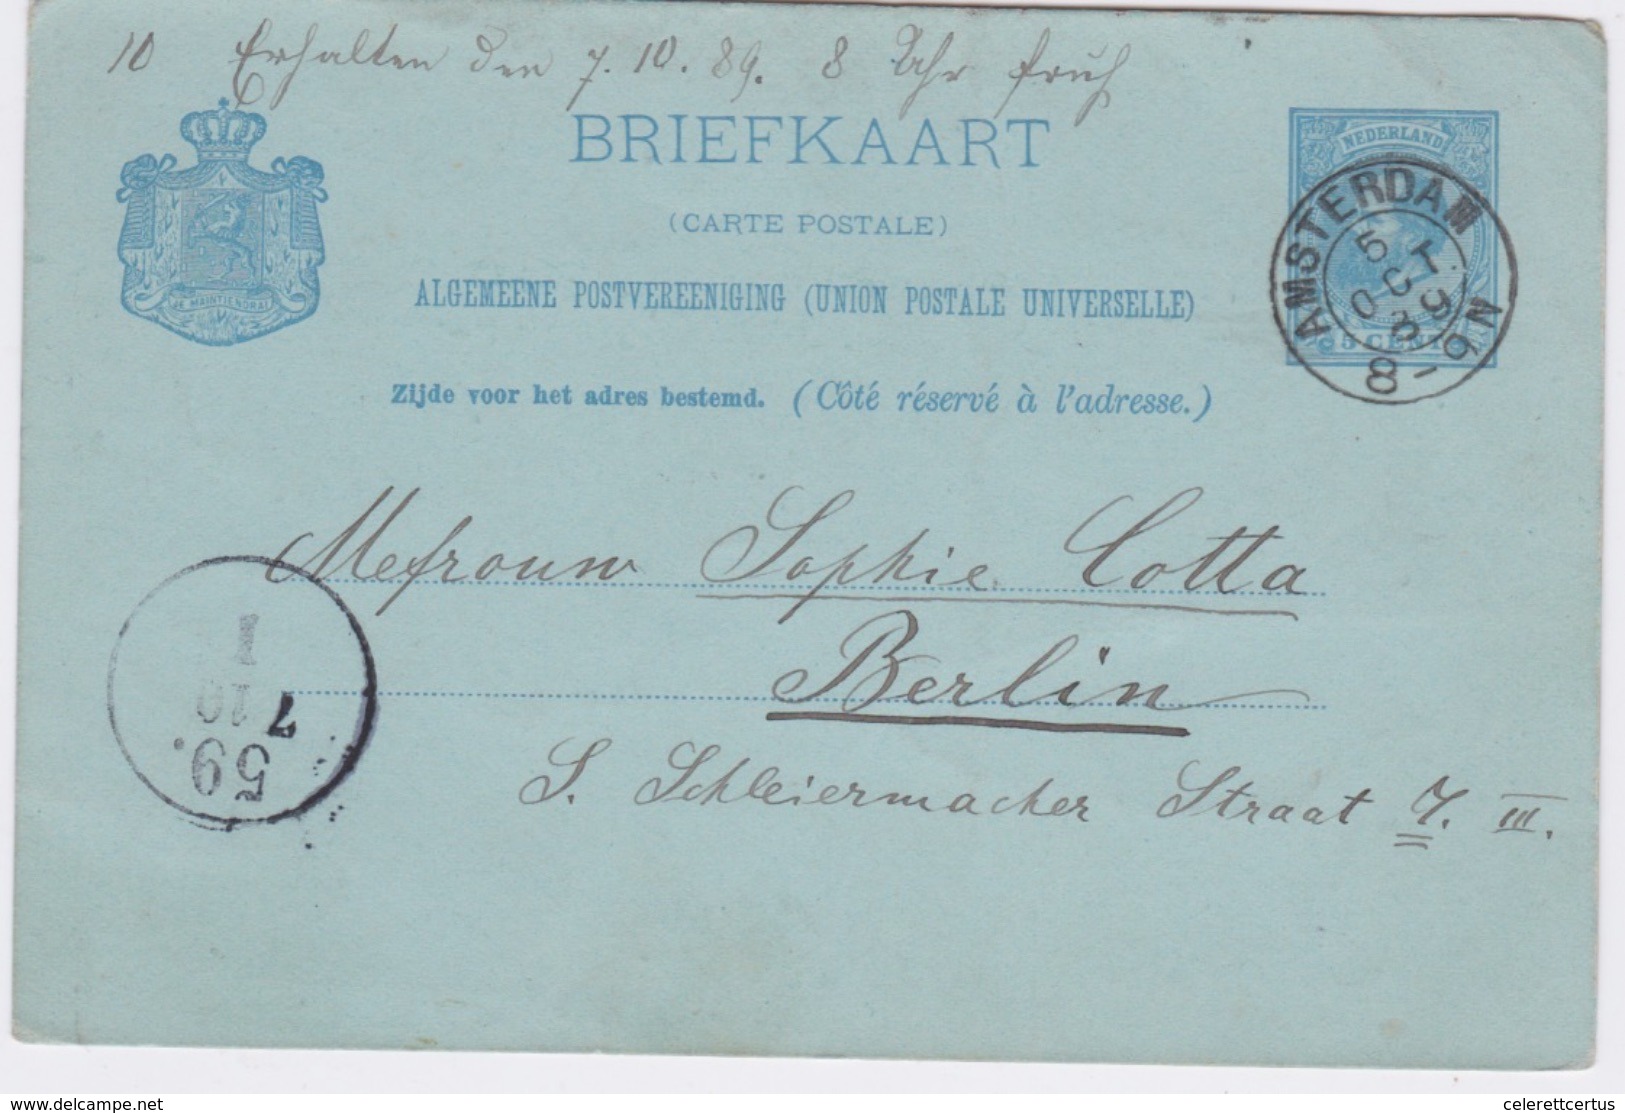 10 Erhalten den 7.10.89. 8 Uhr früh
BRIEFKAART
(CARTE POSTALE)
ALGEMEENE POSTVEREENIGING (UNION POSTALE UNIVERSELLE)
Zijde voor het adres bestemd. (Côté réservé à l'adresse.)
JE MAINTIENDRAI
NEDERLAND
5 CENT
AMSTERDAM
5 OCT 89
8-9N
Mefrouw Sophie Cotta
Berlin
S. Schleiermacher Straat 7. III.
1
7 10
59.
delcampe.net
celerettcertus